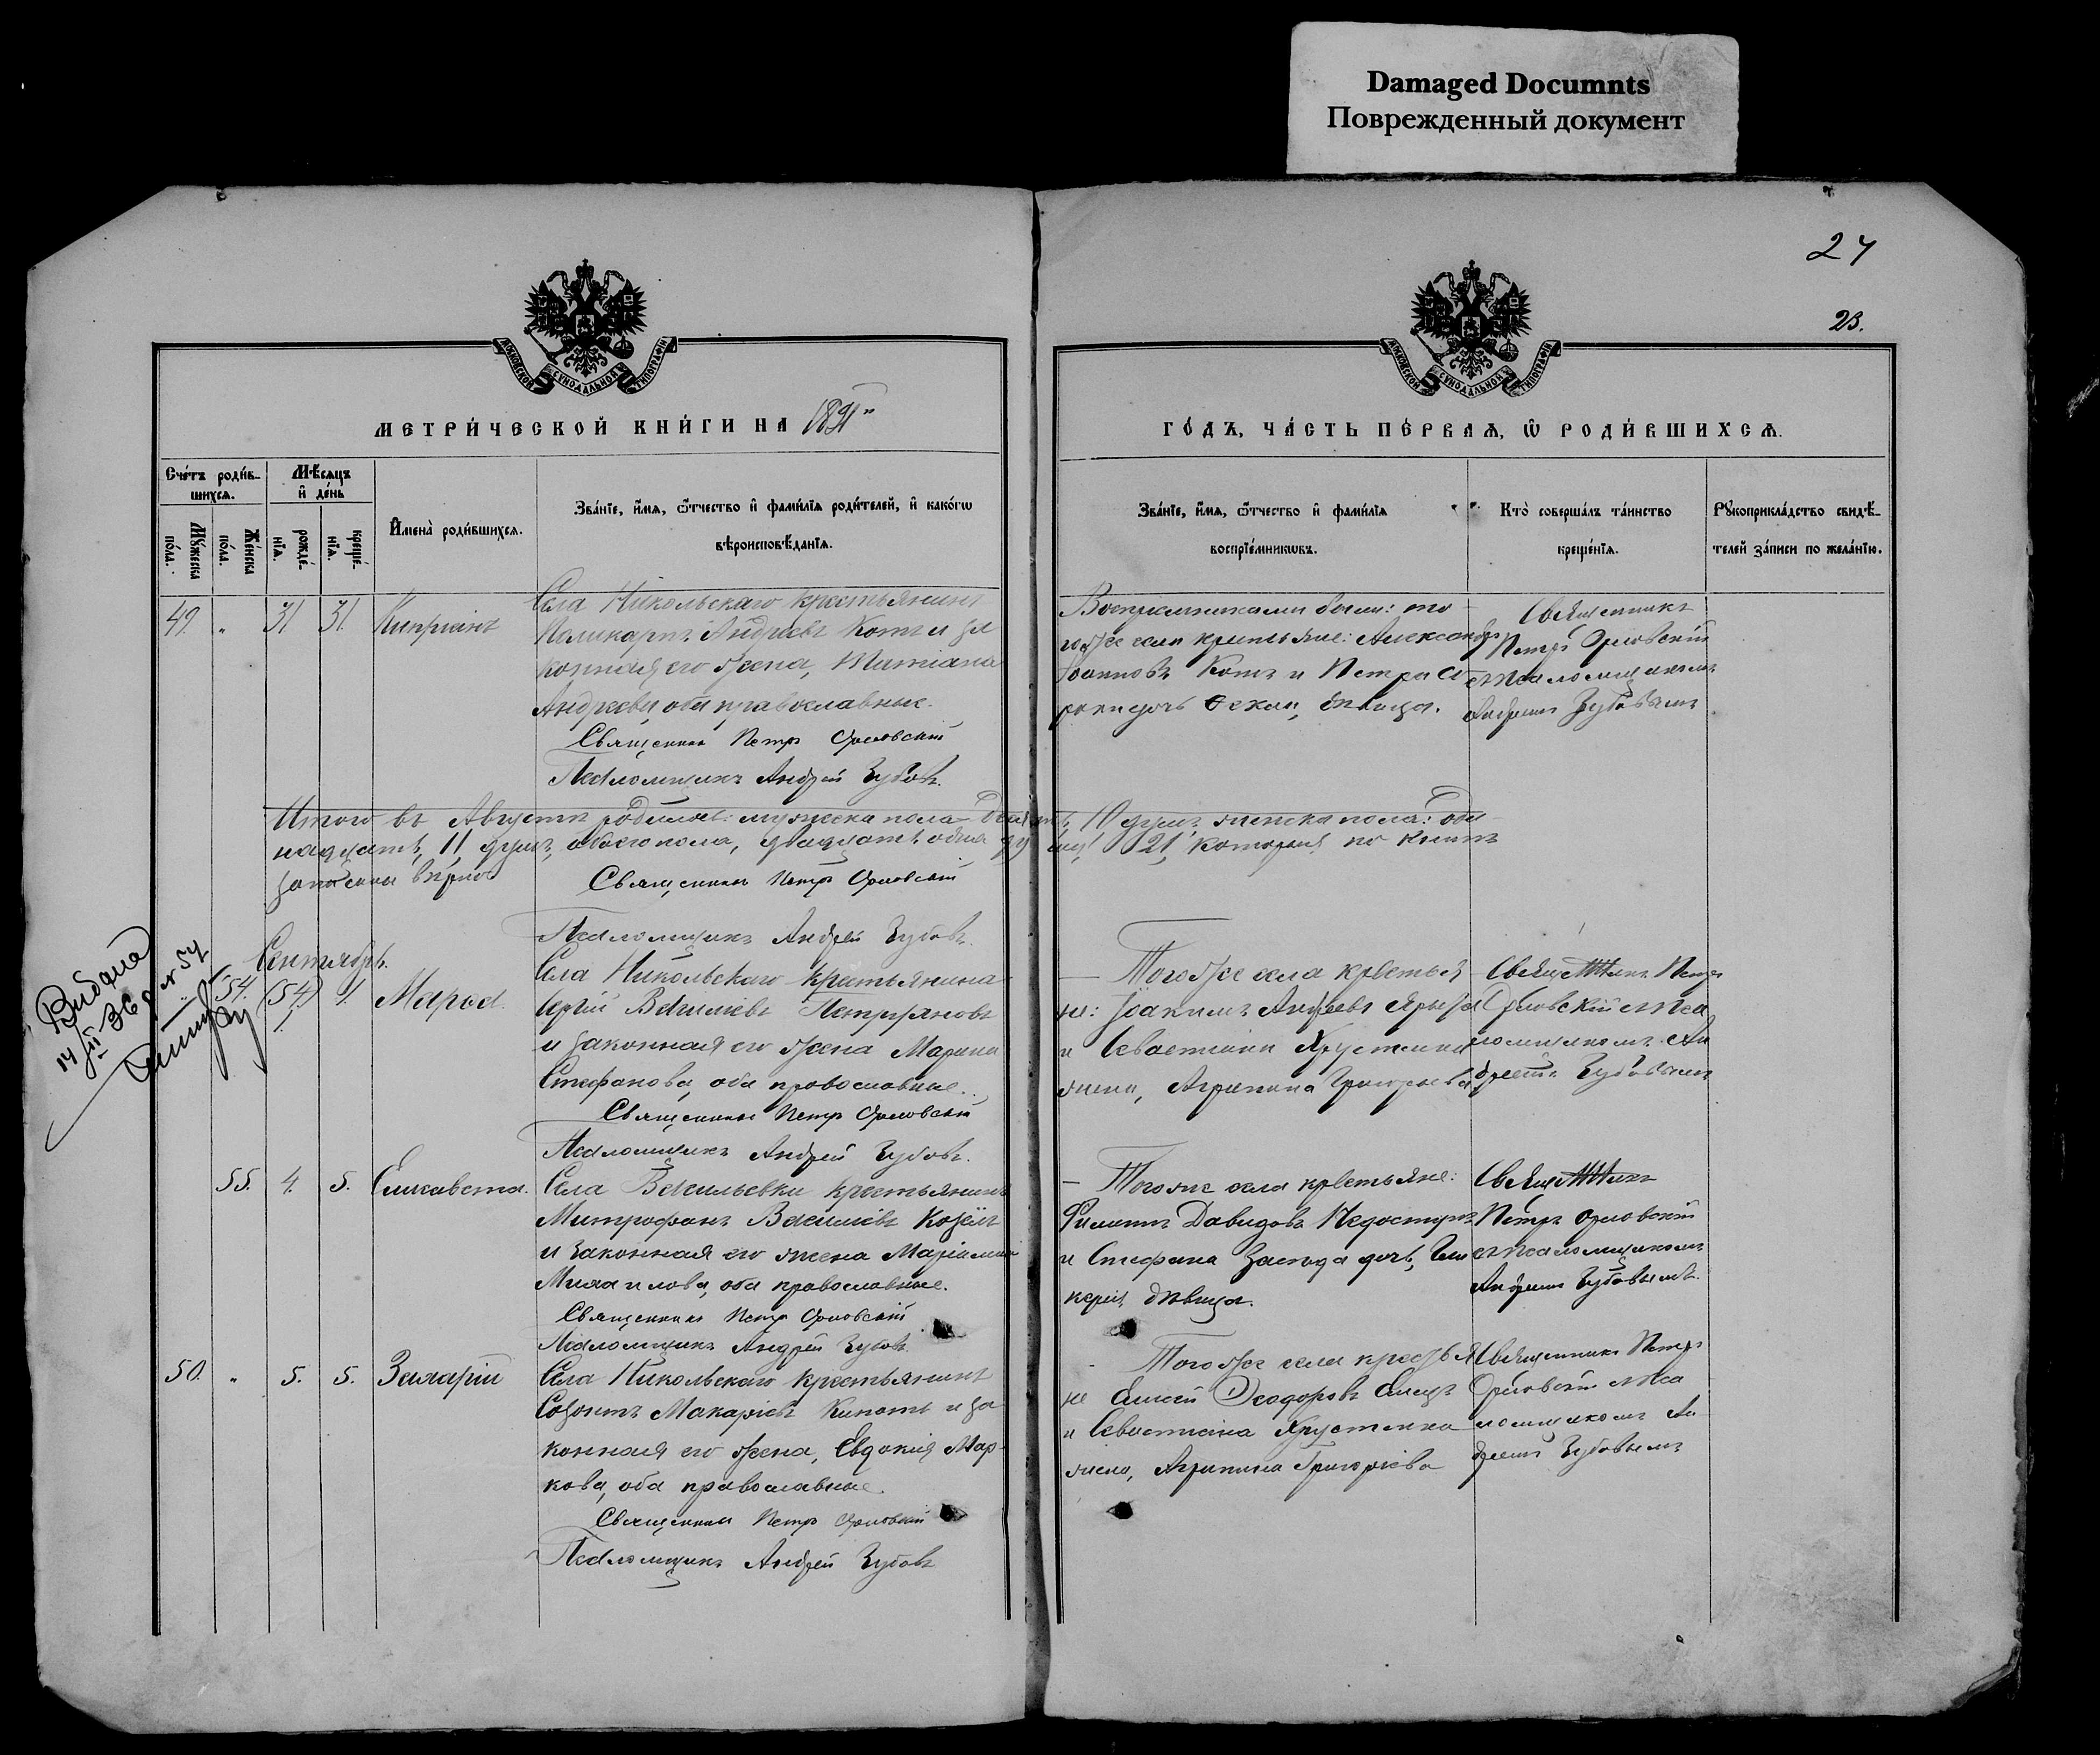 Damaged Documnts
Поврежденный документ
24
23.
МОСКОВСКОЙ СѴНОДАЛЬНОЙ ТИПОГРАФІИ
МОСКОВСКОЙ СѴНОДАЛЬНОЙ ТИПОГРАФІИ
МЕТРИ́ЧЕСКОЙ КНИ́ГИ НА 1891
ГО́ДЪ, ЧА́СТЬ ПЕ́РВАѦ, Ѡ҆ РОДИ́ВШИХСѦ.
Сче́тъ роди́в-
шихсѧ.
Мѣ́сѧцъ
и҆ де́нь
Мꙋ́жеска
по́ла.
Же́нска
по́ла.
рожде́-
нїѧ.
креще́-
нїѧ.
И҆мена̀ роди́вшихсѧ.
Зва́нїе, и҆́мѧ, ѻ҆́тчество и҆ фами́лїѧ роди́телей, и҆ како́гѡ
вѣроисповѣ́данїѧ.
Зва́нїе, и҆́мѧ, ѻ҆́тчество и҆ фами́лїѧ
воспрїе́мникѡвъ.
Кто̀ соверша́лъ та́инство
креще́нїѧ.
Рꙋкоприкла́дство свидѣ́-
телей за́писи по жела́нїю.
49. " 31 31. Кипріанъ
Села Никольскаго крестьянинъ
Поликарпъ Андреевъ Котъ и за
конная его жена, Татіана
Андреева, оба православные.
Священникъ Петръ Орловскій
Псаломщикъ Андрей Зубовъ.
Воспріемниками были: то
гоже села крестьяне: Александръ
Іоанновъ Котъ и Петра
дочь Фекла, дѣвица.
Священникъ
Петръ Орловскій
съ псаломщикомъ
Андреемъ Зубовымъ
Итого въ Августѣ родилось: мужеска пола 10 душъ женска пола: оди
надцать, 11 душъ, обоего пола, двадцать одна душа 21, которыя по книгѣ
записаны вѣрно
Священникъ Петръ Орловскій
Псаломщикъ Андрей Зубовъ.
Сентябрь.
Видана
14/III 36 № 54
" 54. (54) 1. 1. Марѳа
Села Никольскаго крестьянинъ
Василіевъ
и законная его жена Марина
Стефанова, оба православные.
Священникъ Петръ Орловскій
Псаломщикъ Андрей Зубовъ.
— Тогоже села крестья
не: Іоакимъ Андреевъ
и Севастіана Хрустенка
жена, Агрипина Григорьева
Священникъ Петръ
Орловскій съ пса
ломщикомъ Ан
дреемъ Зубовымъ
55. 4. 5. Елисавета.
Села Васильевки крестьянинъ
Митрофанъ Василіевъ Козелъ
и законная его жена
Михаилова, оба православные.
Священникъ Петръ Орловскій
Псаломщикъ Андрей Зубовъ.
— Тогоже села крестьяне:
Филиппъ Давидовъ
и Стефана дочь, Гли
керія, дѣвица.
Священникъ
Петръ Орловскій
съ псаломщикомъ
Андреемъ Зубовымъ.
50. " 5. 5. Захарій
Села Никольскаго крестьянинъ
Созонтъ Макаріевъ и за
конная его жена, Евдокія Мар-
кова, оба православные.
Священникъ Петръ Орловскій
Псаломщикъ Андрей Зубовъ
- Тогоже села крестья
не Елисей Ѳеодоровъ
и Севастіана Хрустенка
жена, Агрипина Григоріева
Священникъ Петръ
Орловскій съ пса
ломщикомъ Ан
дреемъ Зубовымъ